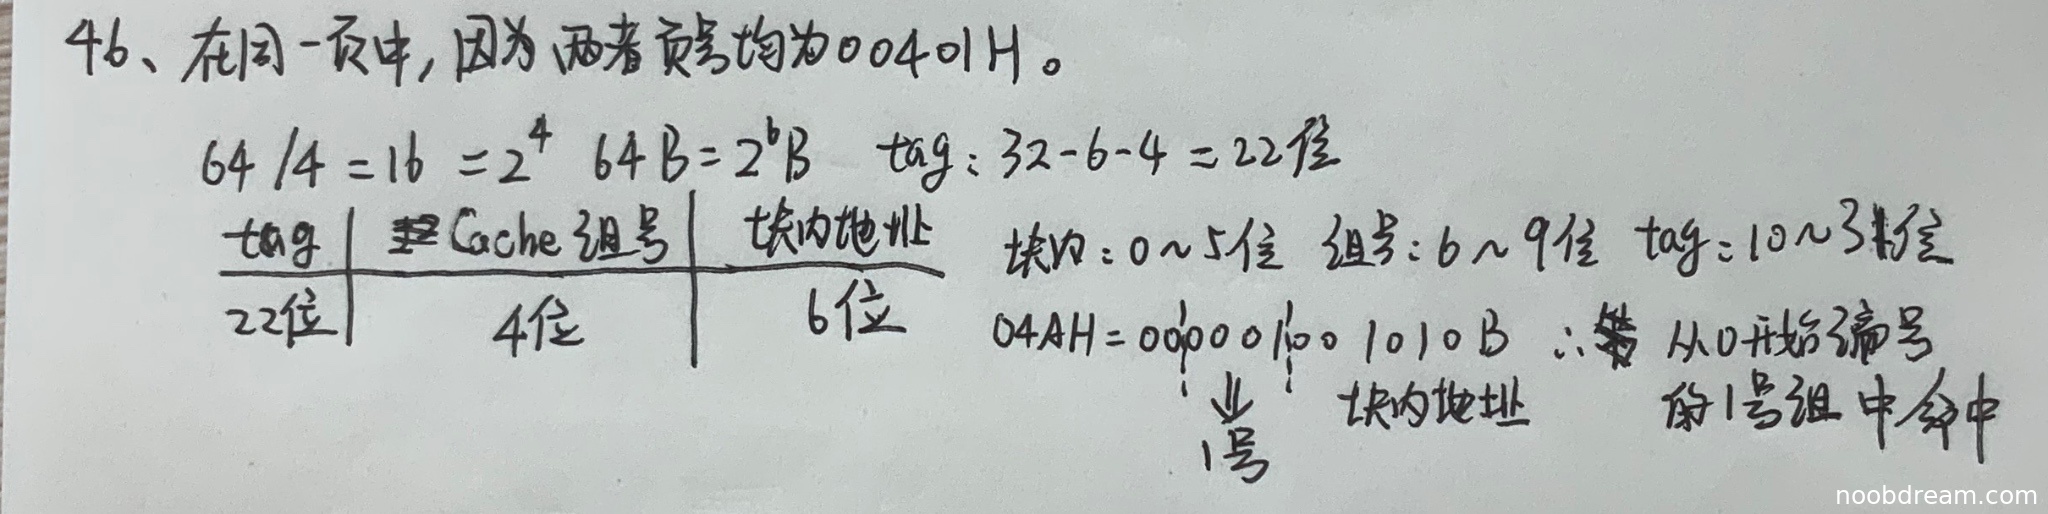 46、在同一页中,因为两者页号均为00401H。
64/4=16=2^4 64B=2^6B tag:32-6-4=22位
tag Cache组号 块内地址
22位 4位 6位
块内:0~5位 组号:6~9位 tag:10~31位
04AH=000001001010B ∴ 从0开始编号
的1号组中命中
块内地址
⇓
1号
noobdream.com